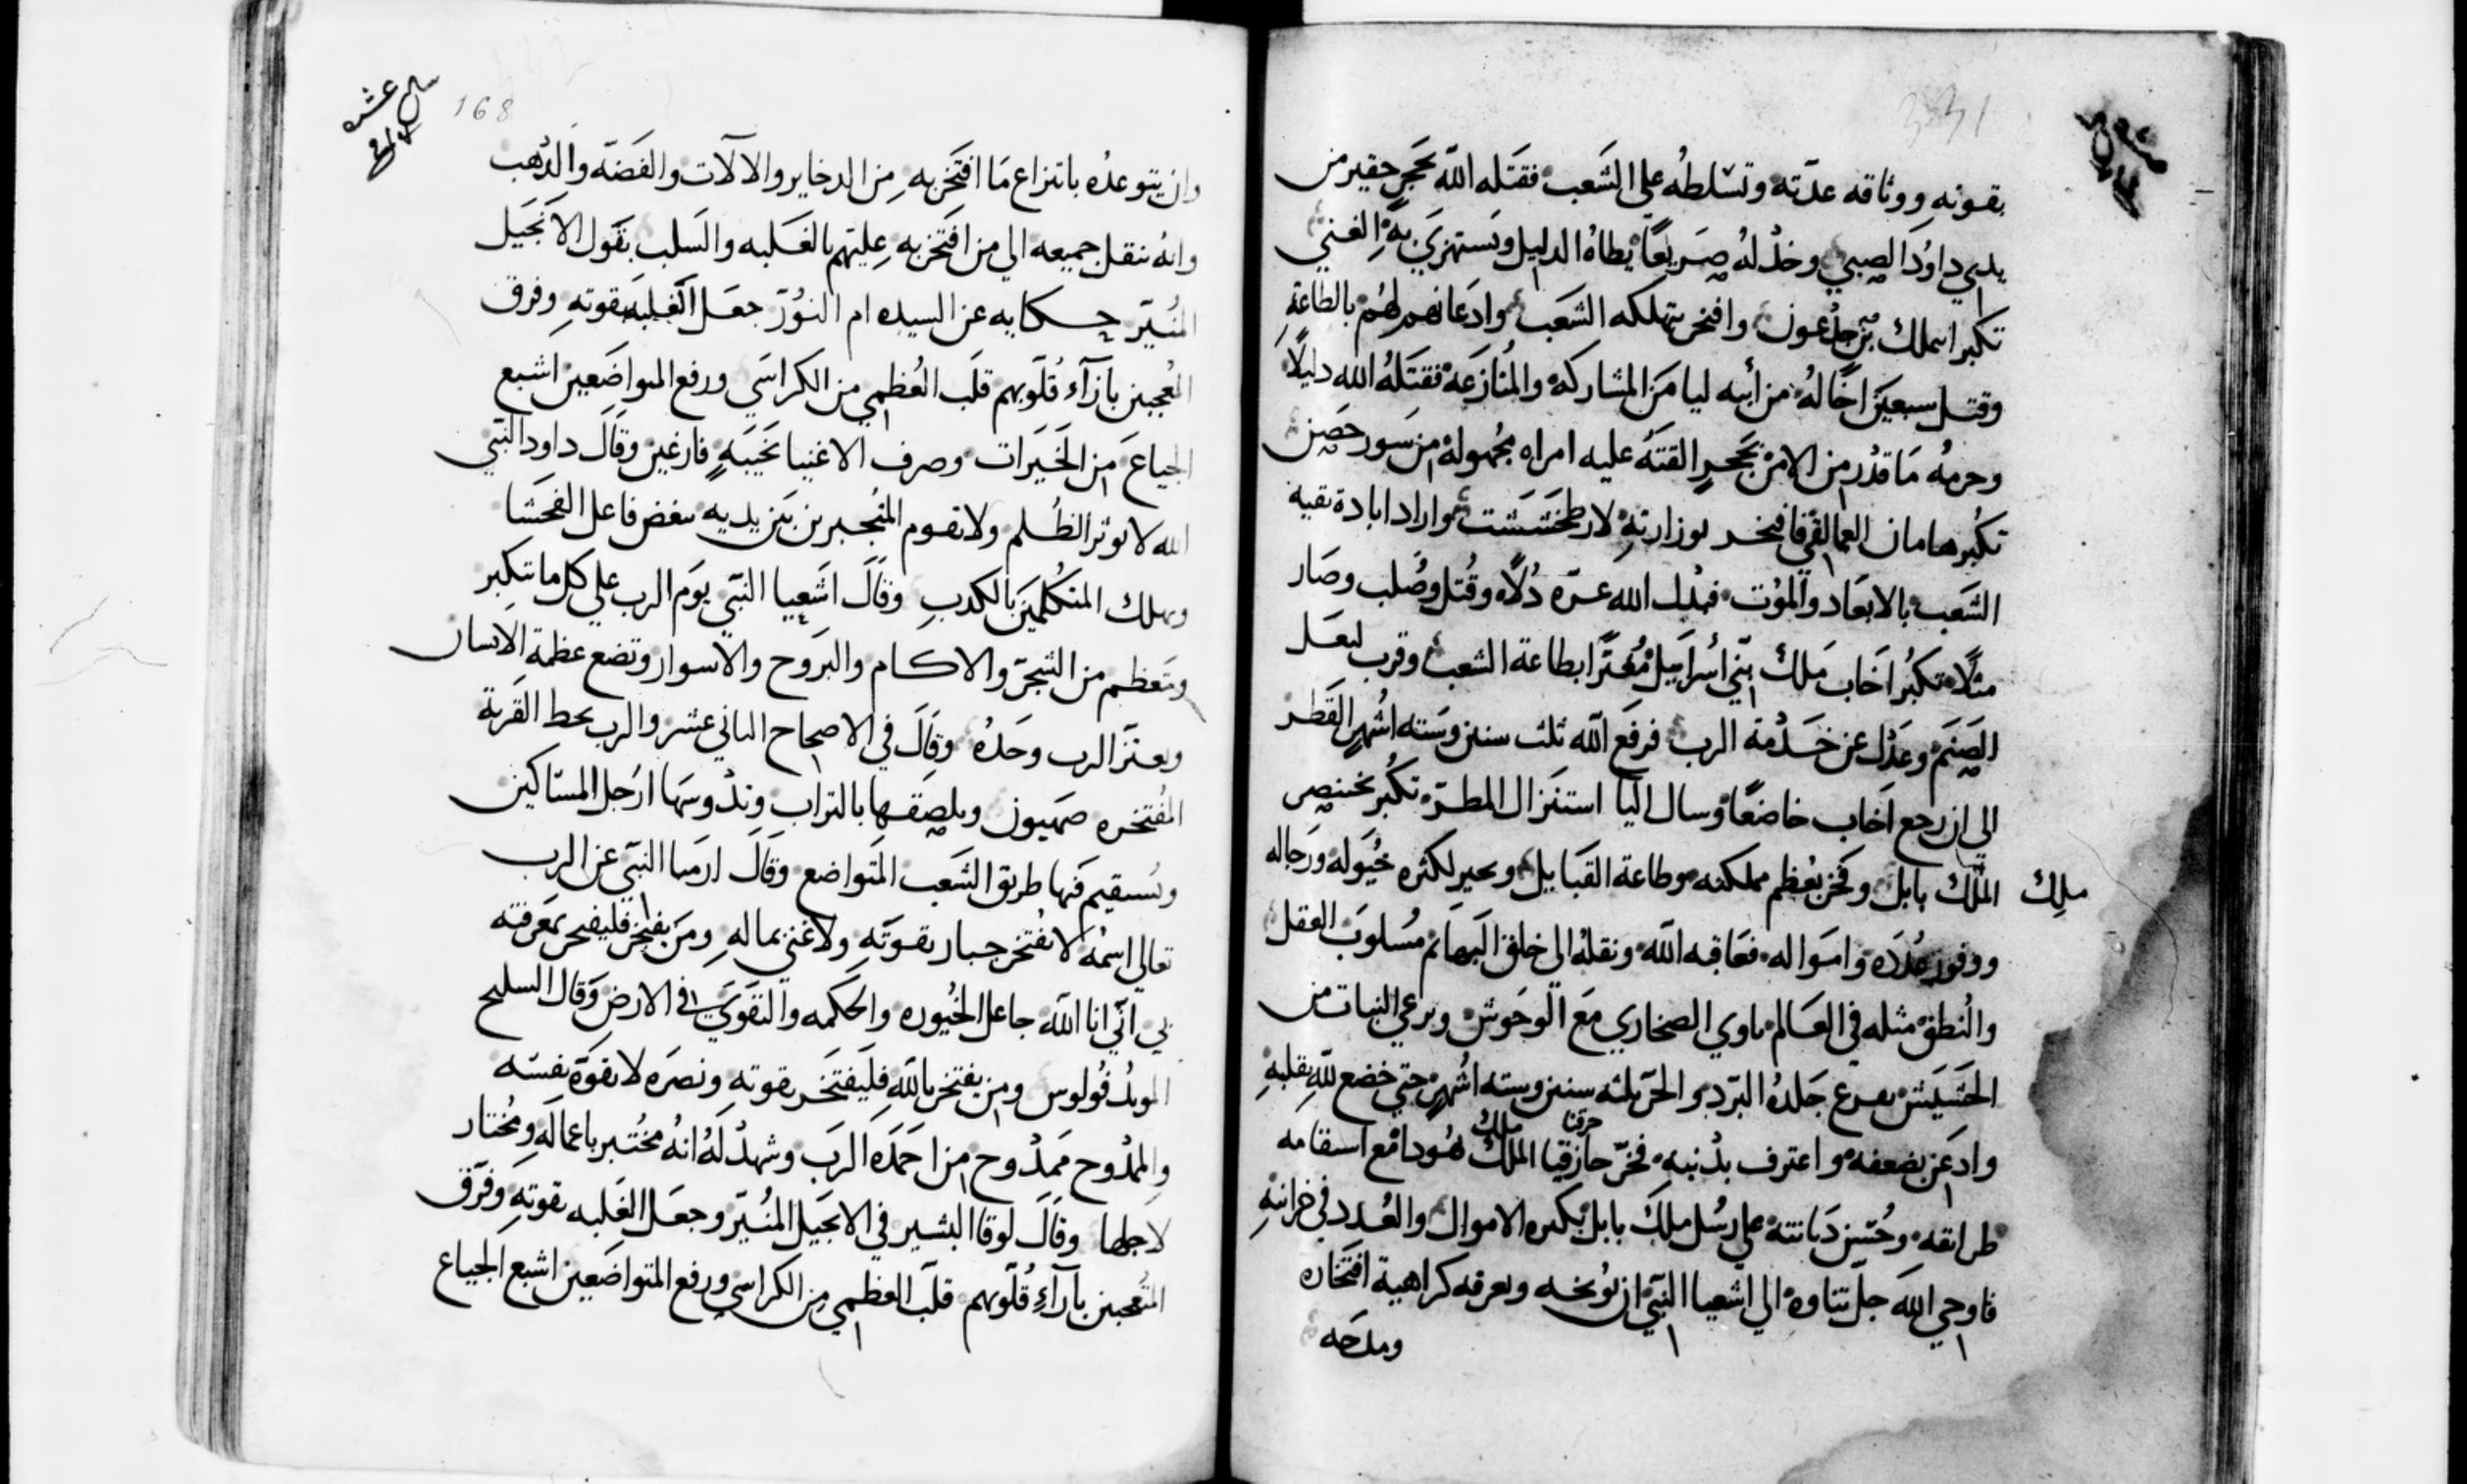 بقوته ووثاقه عدّته وتسّلطهُ علي الشَعب فقتَله اللّه بحَجرٍ حقير من
يدي داوُدَ الصبيي وخدْلهُ صَريعًا يُطاهُ الدليل ويَستهزيَ بهِ الغني
تكبر ابيملك بن جدْعون وافتخر بتملكه الشَعب وادعانهم لهُم بالطاعةِ
وقتل سبعيَن اخًا لهُ من أبيه ليامَن المشاركه والمُنازَعة فقتَلهُ الله دليلًا
وحرمهُ مَا قدّر من الامن بحَجرٍ القتَهُ عليه امراه مجهولة من سَور حَصِين
تكُبر هامان العمالقي فافتخر بوزارتهِ لارطخشَشت واراد ابادة بقيه
الشَعب بالابعَاد والموُت فبدْل الله عزّه دُلاً وقُتل وصُلب وصَار
مثلًا تكبُر اخَاب مَلك بنّي اسُراييل مُغترًا بطاعة الشعب وقرب لبعَل
الصَنَم وعَدْل عن خدْمة الرب فرفَع اللّه ثلث سنين وسَته اشُهرٍ القَطر
الي ان رجع اخَاب خاضعًا وسال اليا استنزال المطرّ تكُبر بختنصر
ملك
الملّك بابل وفخر بعُظم مملكته وطاعة القبَاييل وتحير لكثره خيُوله ورَجاله
ووفور عُدَده وامَواله فعَاقبه اللّه ونقلهُ الي خلق البهَائم مُسلوبَ العقل
والُنطق مثله في العَالم ياوي الصحاري مَع الوحَوش ويرعي النبات من
الحَشيش يصرع جَلدهُ البرَد والحرّ ثلثه سنين وسته اشُهر حتي خضع للّه بقلبهِ
وادعَن بضعفه واعترف بدْنبه فخرّ حازقيا الملك هُودا مَع استقامه
حزقيا ملك
طرايقه وحُسن دَيانته علي رسُل ملِك بابل بكثره الاموال والعُدد في خزاينهِ
فاوحي اللّه جلّ ثناوه الي اشعيا النبيّ ان يُوبخه ويعرفه كراهية افتخاره
ومدحَه
168
وان يتوعدُه بانتزاع مَا افتَخر به من الدخاير والالآت والفَضّه والدُهب
وانهُ ننقل جميعه الي من افتَخر به عليَهم بالغلبه والسَلب بقول الانجَيل
المنُيرّ حكايه عن السيده ام النوُرّ جعَل الغلبه بقوتهِ وفرق
المُعجبين بازآء قُلوبهم قلَب العُظمي من الكراسَي ورفع المتواضَعين اشبع
الجياعَ من الخيَرات وصرف الاغنيا بخَيبةٍ فارغين وقَال داود النبّي
الله لا يوثر الظُلم ولا تقوم المُتجبرين بَين يديه يبغض فاعل الفحشَا
ويهلك المتكُلميَن بالكدب وقَالَ اشَعيا النبّي يوَم الرب علي كل ما تتكبر
ومتعظم من الشجَر والاكام والبروج والاسوار وتضع عظمة الانسان
ويعتزّ الرب وحَدهُ وقَالَ في الاصحاح الثاني عشر والرب يحط القَرية
المفُتخره صهيون ويلصِقها بالترابِ وتدُوسَها ارَجل المسّاكين
وتستقيم فيها طريق الشَعب المتواضع وقَالَ ارميا النبّي عن الرب
تعالي اسمُه لا يفُتخر جبار بقوتّهِ ولا غنيّ بمالهِ ومَن يفتخر فليفتخر بمَعرفته
بي انّي انا اللّه جاعل الخيُوره والحكمه والتقوَي في الارض وَقال السليح
المويدُ فوُلوس ومن يفتخر باللّهِ فليَفتخَر بقوته ونصَره لا بقوَة نفسَه
والممدْوح مَمدُوح من احَمَدَه الربَ وشهدْ لَهُ انهُ مخُتبر باعمالَهِ ومُختار
لاجلها وقَالَ لوقا البشير في الانجَيل المنُيرّ وجعَل الغَلبه بقوتهِ وفرّق
المُعجبين بآراءِ قُلوبهم قلَب العظمي من الكراسي ورفع المتواضَعين اشبَع الجياع